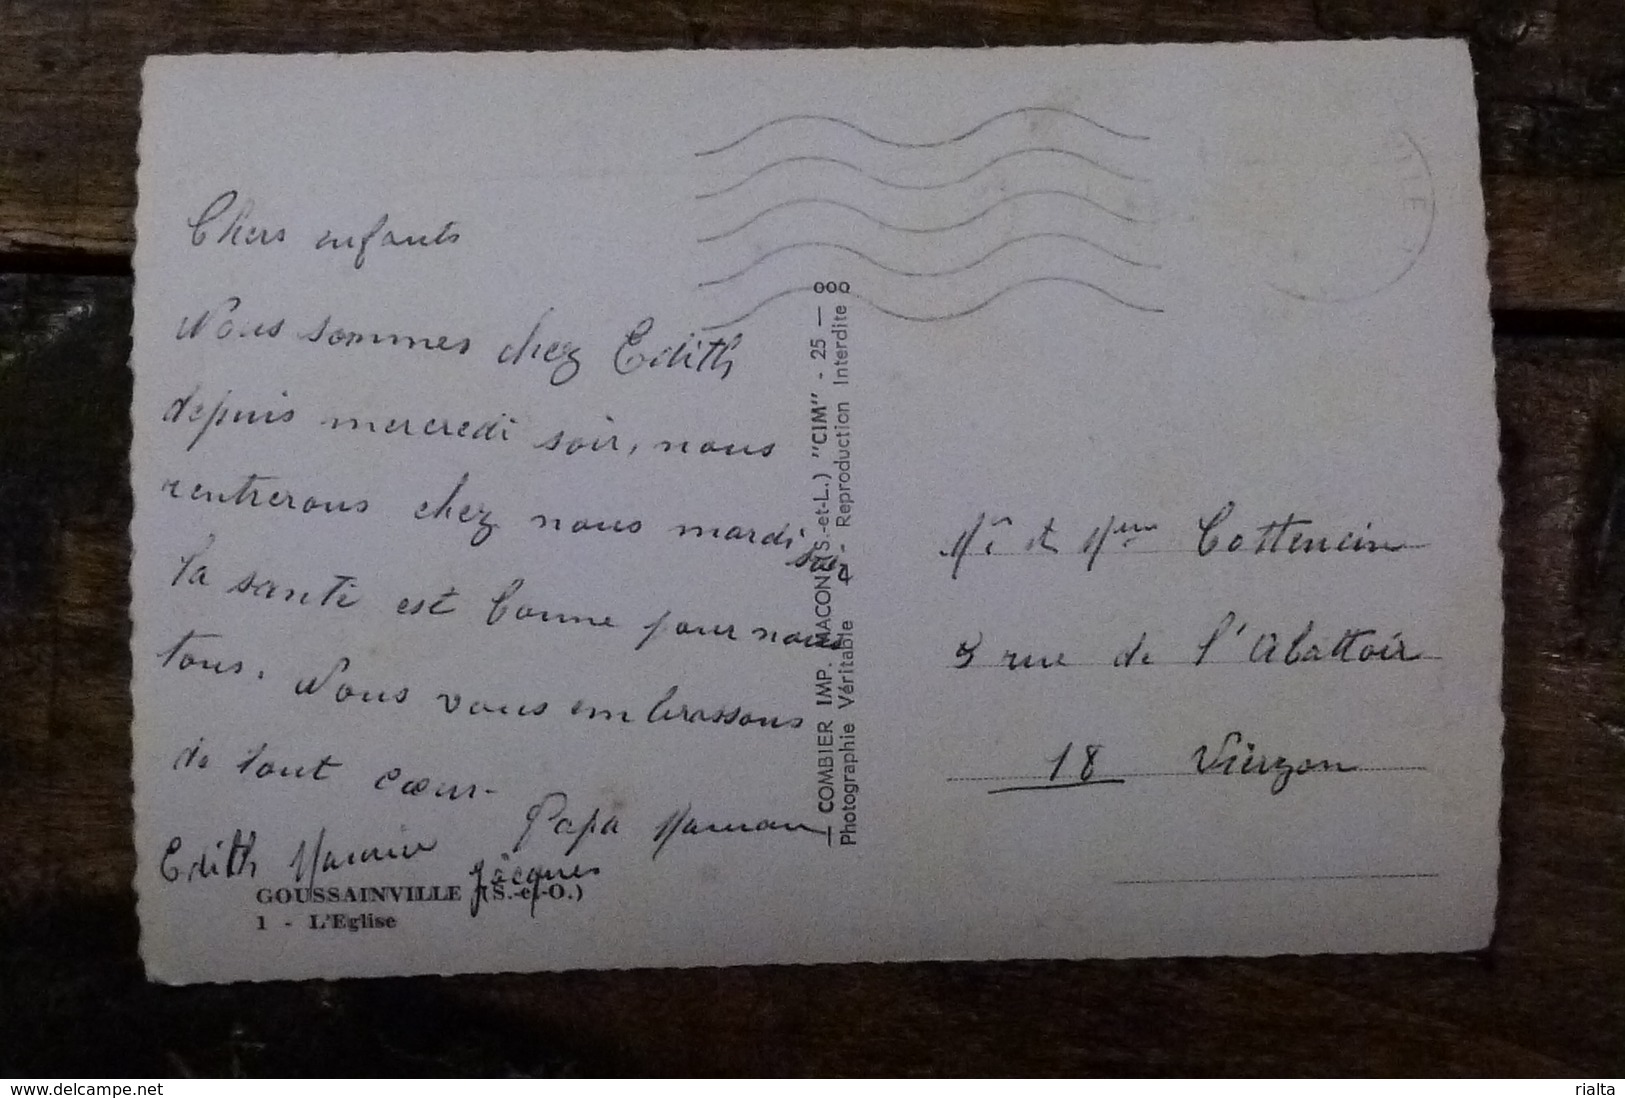 Chers enfants
Nous sommes chez Edith
depuis mercredi soir, nous
rentrerons chez nous mardi soir
la santé est bonne pour nous
tous. Nous vous embrassons
de tout cœur.
Papa Maman
Edith Jacques
GOUSSAINVILLE (S.-et-O.)
1 - L'Eglise
COMBIER IMP. MACON (S.-et-L.) "CIM" - 25 —
Photographie Véritable - Reproduction Interdite
Mr et Mme Cottencin
3 rue de l'Abattoir
18 Vierzon
www.delcampe.net
rialta